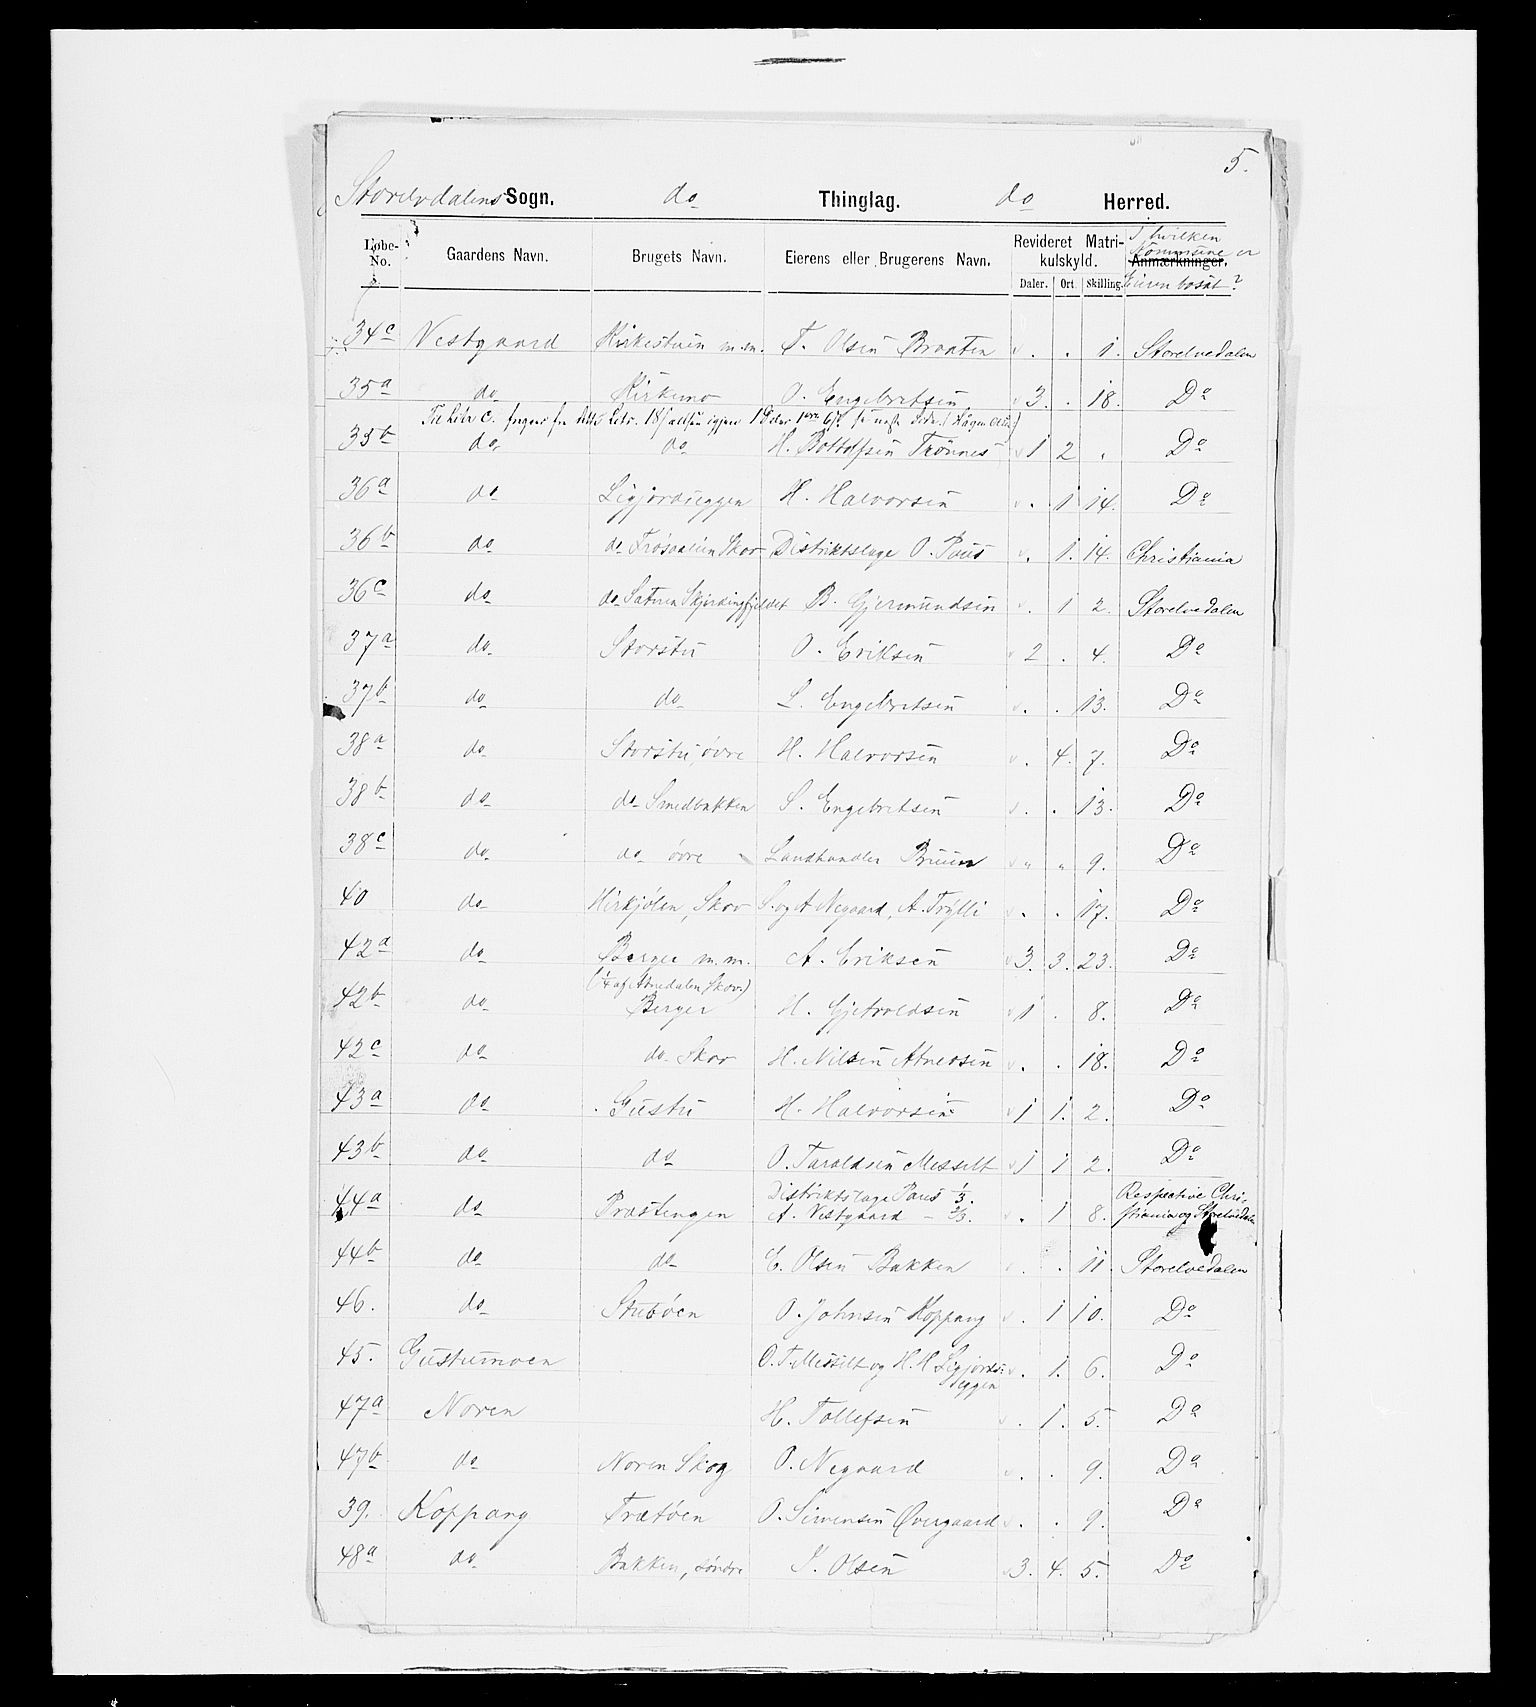 5.
Storelvdalens Sogn. do Thinglag. do Herred.
Løbe-No. Gaardens Navn. Brugets Navn. Eierens eller Brugerens Navn. Revideret Matrikulskyld. Daler. Ort. Skilling. Anmærkninger. I hvilken Kommune er Eieren bosat?
34c Vestgaard Kirkestuen m.m. T. Olsen Braaten . . 1. Storelvedalen
35a do Kirkemo O. Engebretsen 3. . 18. Do
Til Litr c. fra
35b do do H. Bottolfsen Trønnes 1 2 . Do
36a do Ligjordseggen H. Halvorsen . 1 14. Do
36b do do Skov Distriktslæge O. Paus . 1. 14. Christiania
36c do do Sæteren Skjærdingfjeldet B. Gjermundsen . 1 2. Storelvedalen
37a do Storstu O. Eriksen 2 . 4. Do
37b do do L. Engebretsen . . 13. Do
38a do Storstu, øvre H. Halvorsen . 4. 7. Do
38b do do Smedbakken S. Engebretsen . . 13. Do
38c do do øvre Landhandler Bruun " " 9. Do
40 do Hirkjølen, Skov S. og A Negaard, A. Trylli . . 17. Do
42a do Berger m.m. A. Eriksen 3. 3. 23. Do
(¼ af Atnedalen Skov)
42b do Berger H. Gjetvoldsen 1 . 8. Do
42c do do Skov H. Nilsen Atneosen . . 18. Do
43a do Gustu H. Halvorsen 1 1. 2. Do
43b do do O. Taraldsen Messelt 1 1 2. Do
44a do Præstengen Distriktslæge Paus ⅓. A. Vestgaard – ⅔. . 1 8. Respective Christiania og Storelvedalen
44b do do E. Olsen Bakken . . 11 Storelvedalen
46. do Stubøen O. Johnsen Koppang . 1 10. Do
45. Gustumoen O. T. Messelt og H. H Ligjords:eggen . 1. 6. Do
47a Noren H. Tollefsen . 1. 5. Do
47b do Noren Skog P. Negaard . . 9. Do
39. Koppang Trætøen O. Simensen Øvergaard . . 9. Do
48a do Bakken, søndre J. Olsen 3. 4. 5. Do